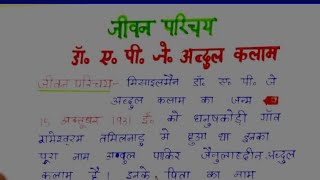 जीवन परिचय
डॉ. ए. पी. जे. अब्दुल कलाम
जीवन परिचय:- मिसाइलमैन डॉ. ए. पी. जे
अब्दुल कलाम का जन्म
15 अक्टूबर 1931 ई. को धनुषकोडी गाँव
रामेश्वरम तमिलनाडु में हुआ था इनका
पूरा नाम अब्दुल पाकिर जैनुलाब्दीन अब्दुल
कलाम है। इनके पिता का नाम